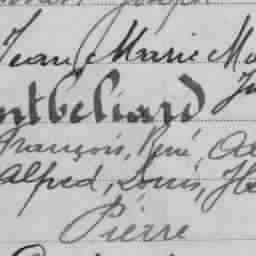 Jean Marie
ntbeliard
François, René,
Alfred, Louis,
Pierre